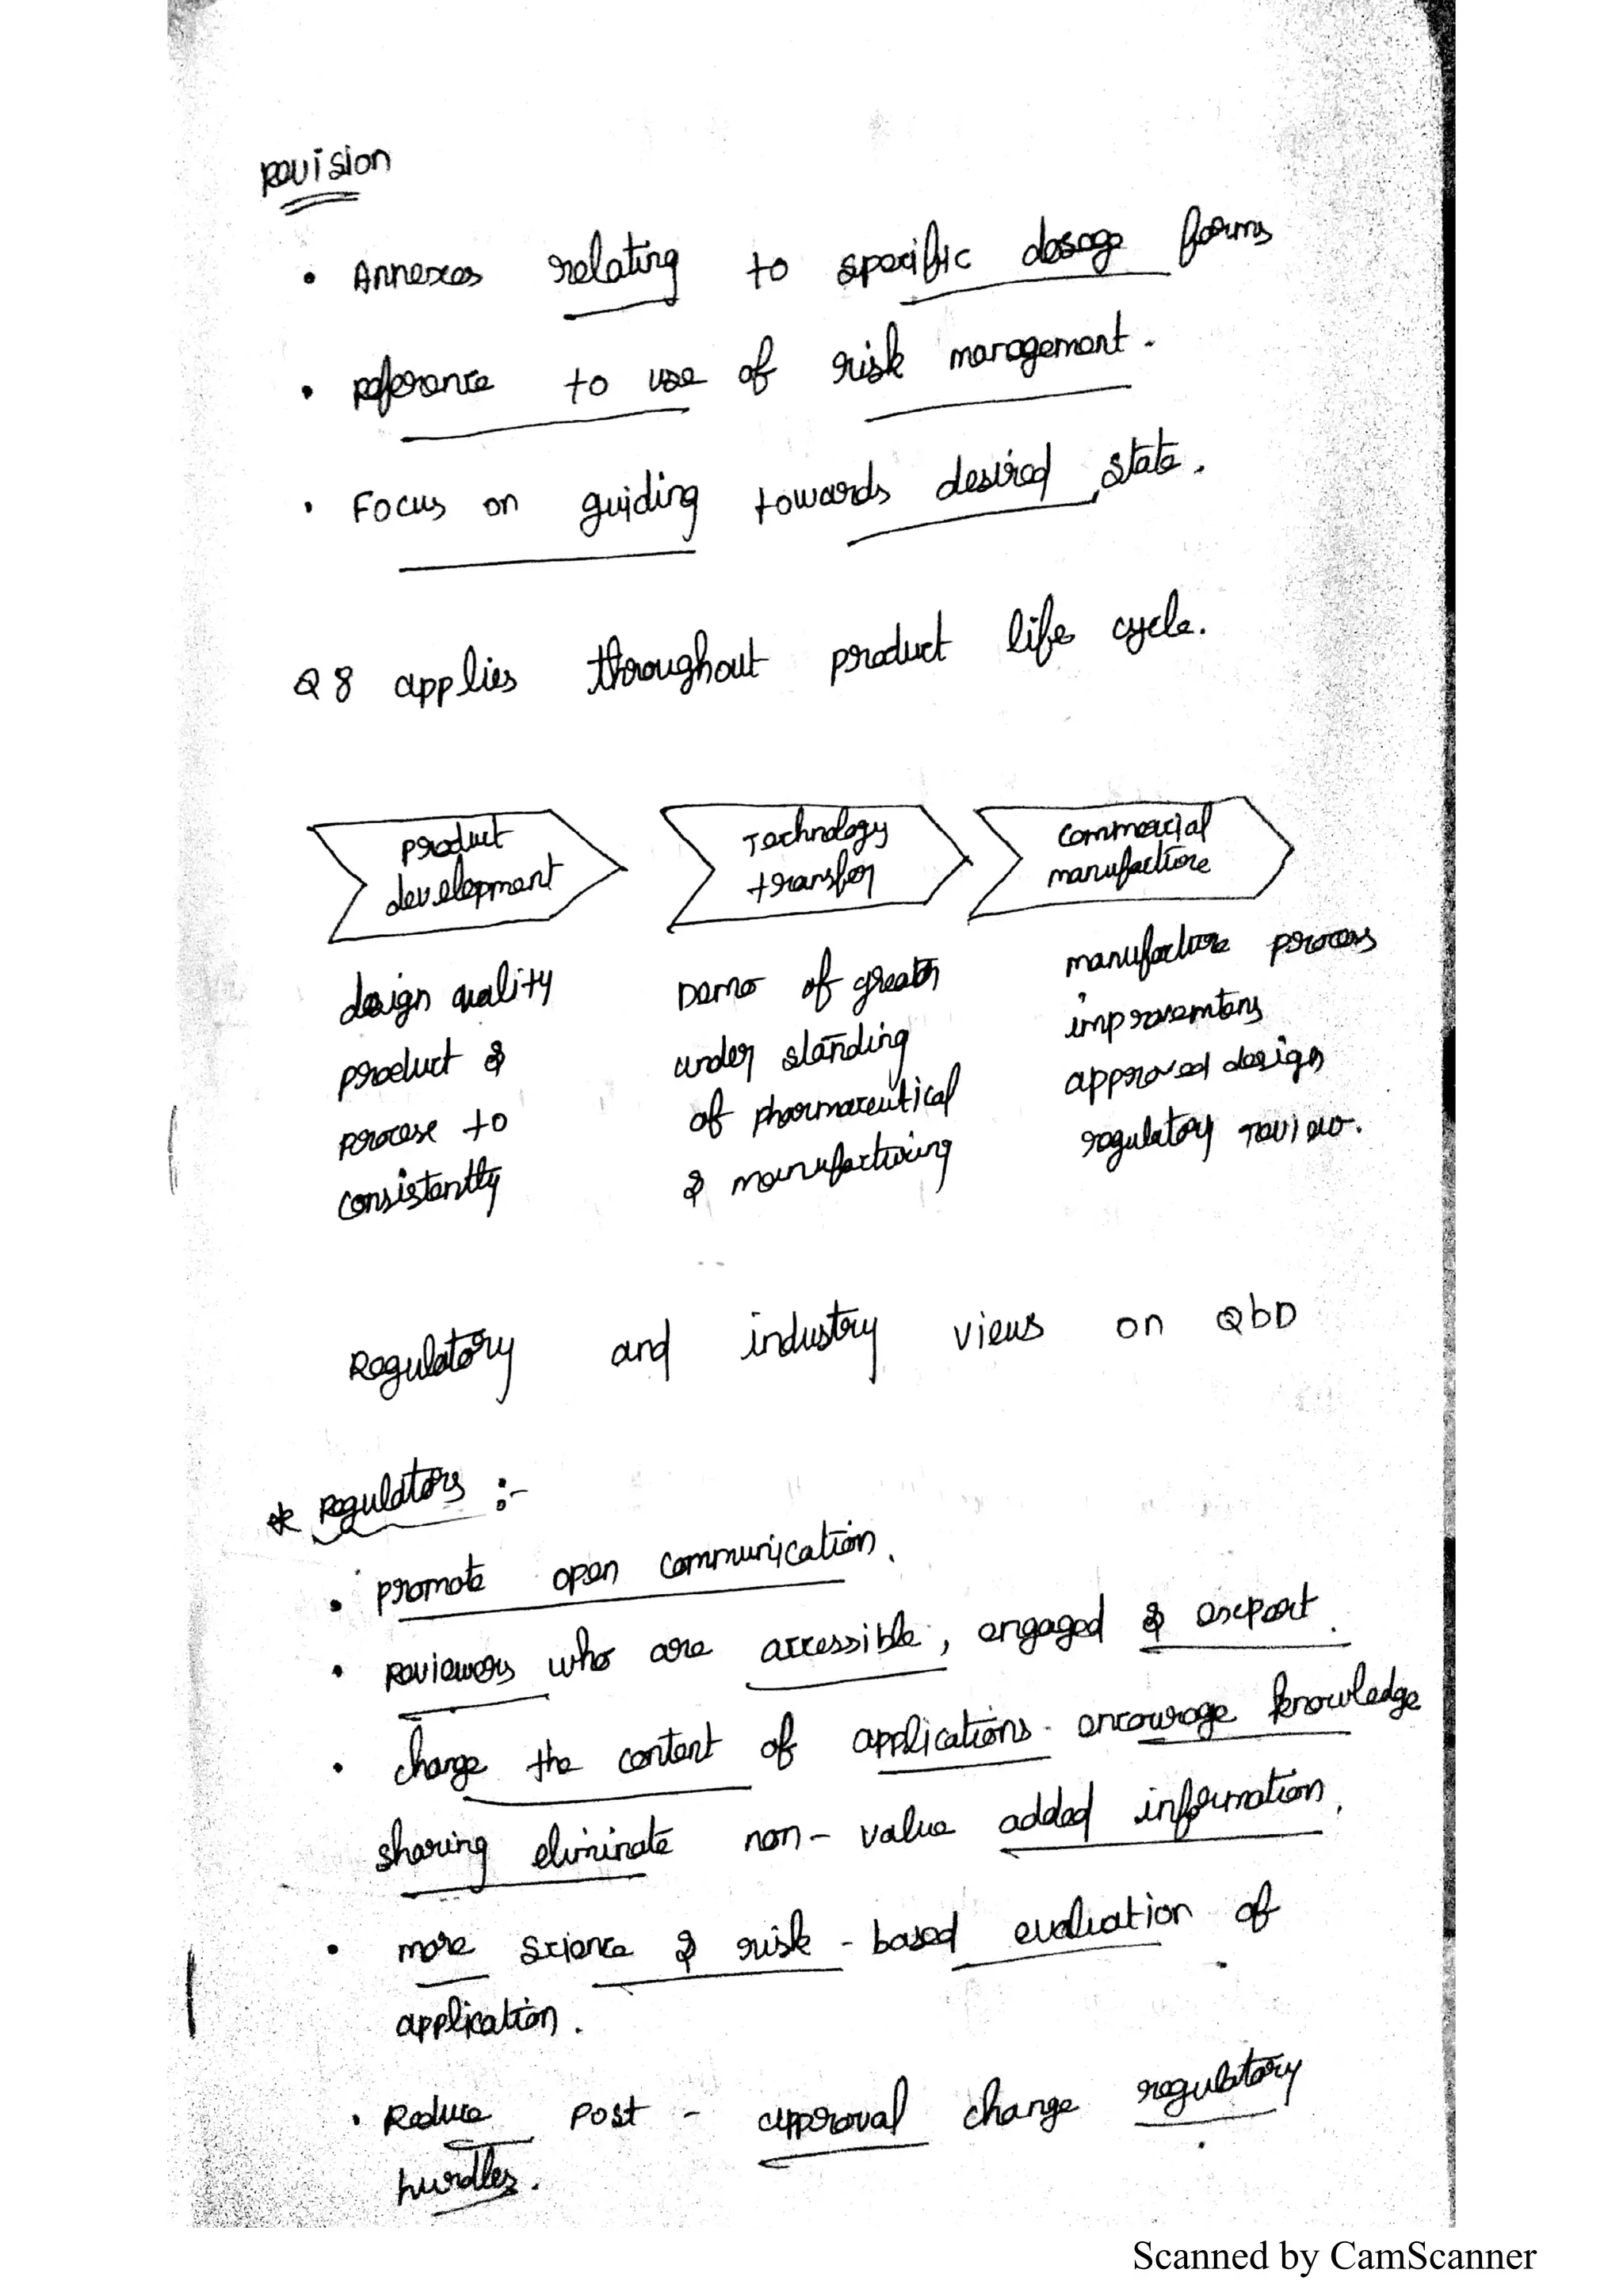 Revision
• Annexes relating to specific dosage forms
• Reference to use of risk management.
• Focus on guiding towards desired state.
Q8 applies throughout product life cycle.
Product
development
Technology
transfer
Commercial
manufacture
design quality
product &
process to
consistently
Demo of greater
under standing
of pharmaceutical
& manufacturing
manufacture process
improvements
approved design
regulatory review.
Regulatory and industry views on QbD
* Regulators :-
• promote open communication.
• Reviewers who are accessible, engaged & expert.
• change the content of applications - encourage knowledge
sharing eliminate non-value added information.
• more science & risk-based evaluation of
application.
• Reduce post-approval change regulatory
hurdles.
Scanned by CamScanner